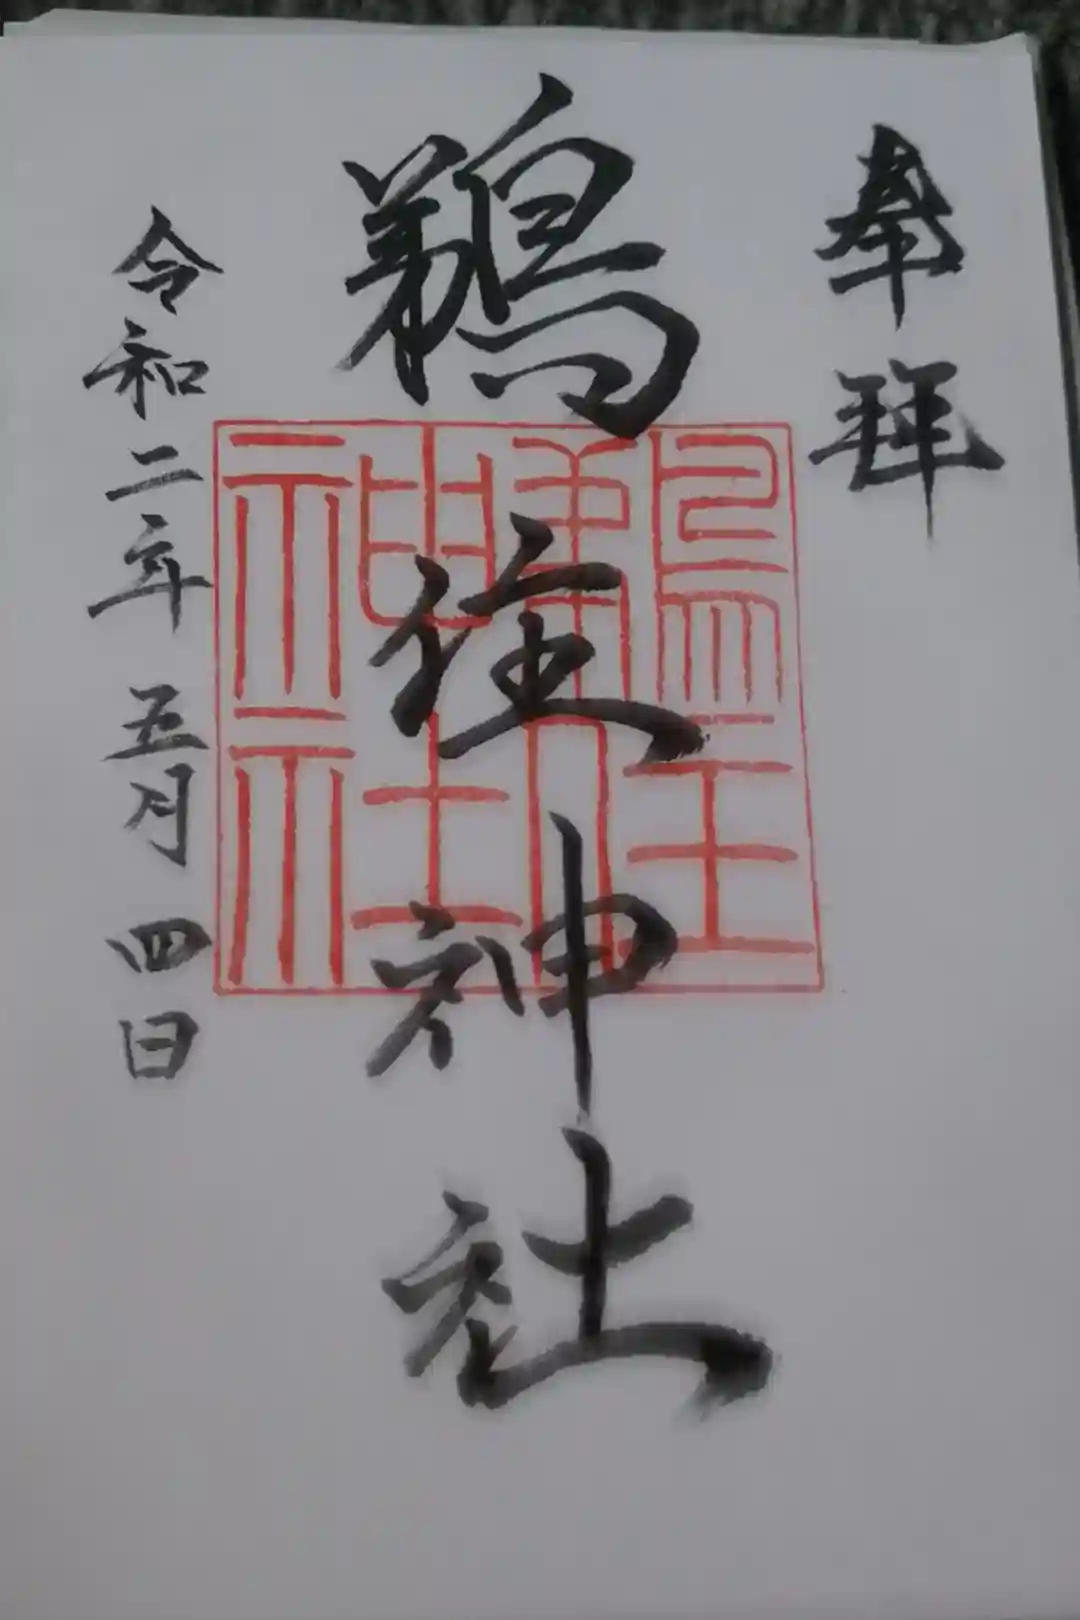 奉拜
鵜住神社
令和二年五月四日
鵜住
神社